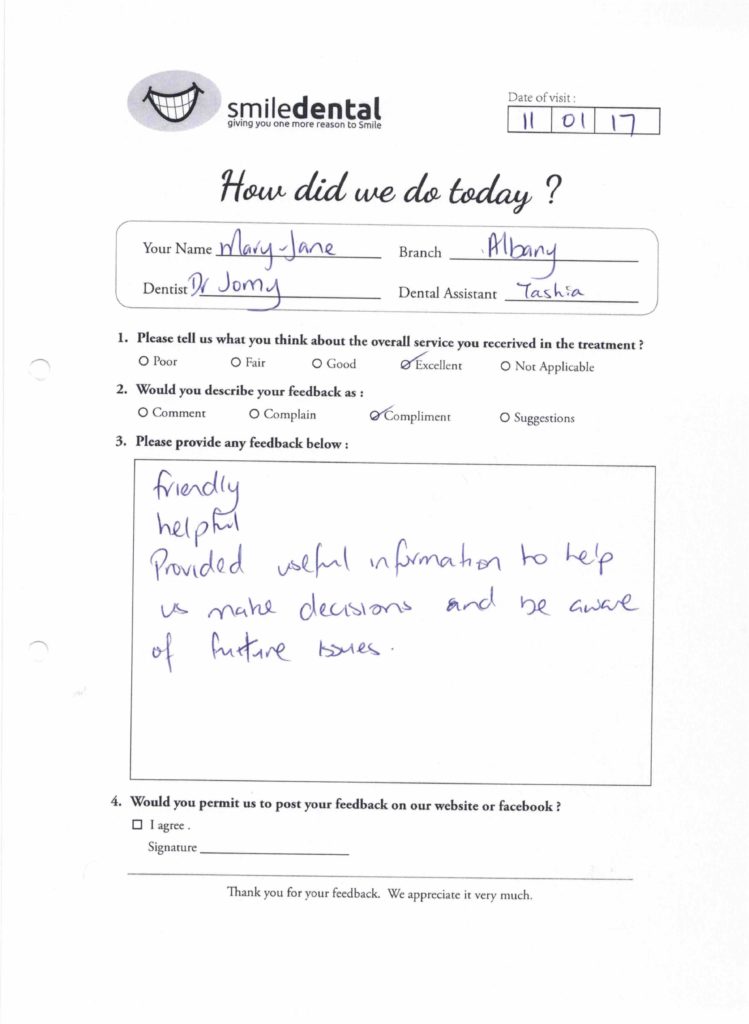 smiledental
giving you one more reason to Smile
Date of visit :
11 01 17
How did we do today ?
Your Name Mary-Jane Branch Albany
Dentist Dr Jomy Dental Assistant Tashia
1. Please tell us what you think about the overall service you recerived in the treatment ?
Poor Fair Good Excellent Not Applicable
2. Would you describe your feedback as :
Comment Complain Compliment Suggestions
3. Please provide any feedback below :
friendly
helpful
Provided useful information to help
us make decisions and be aware
of future issues.
4. Would you permit us to post your feedback on our website or facebook ?
I agree .
Signature
Thank you for your feedback. We appreciate it very much.